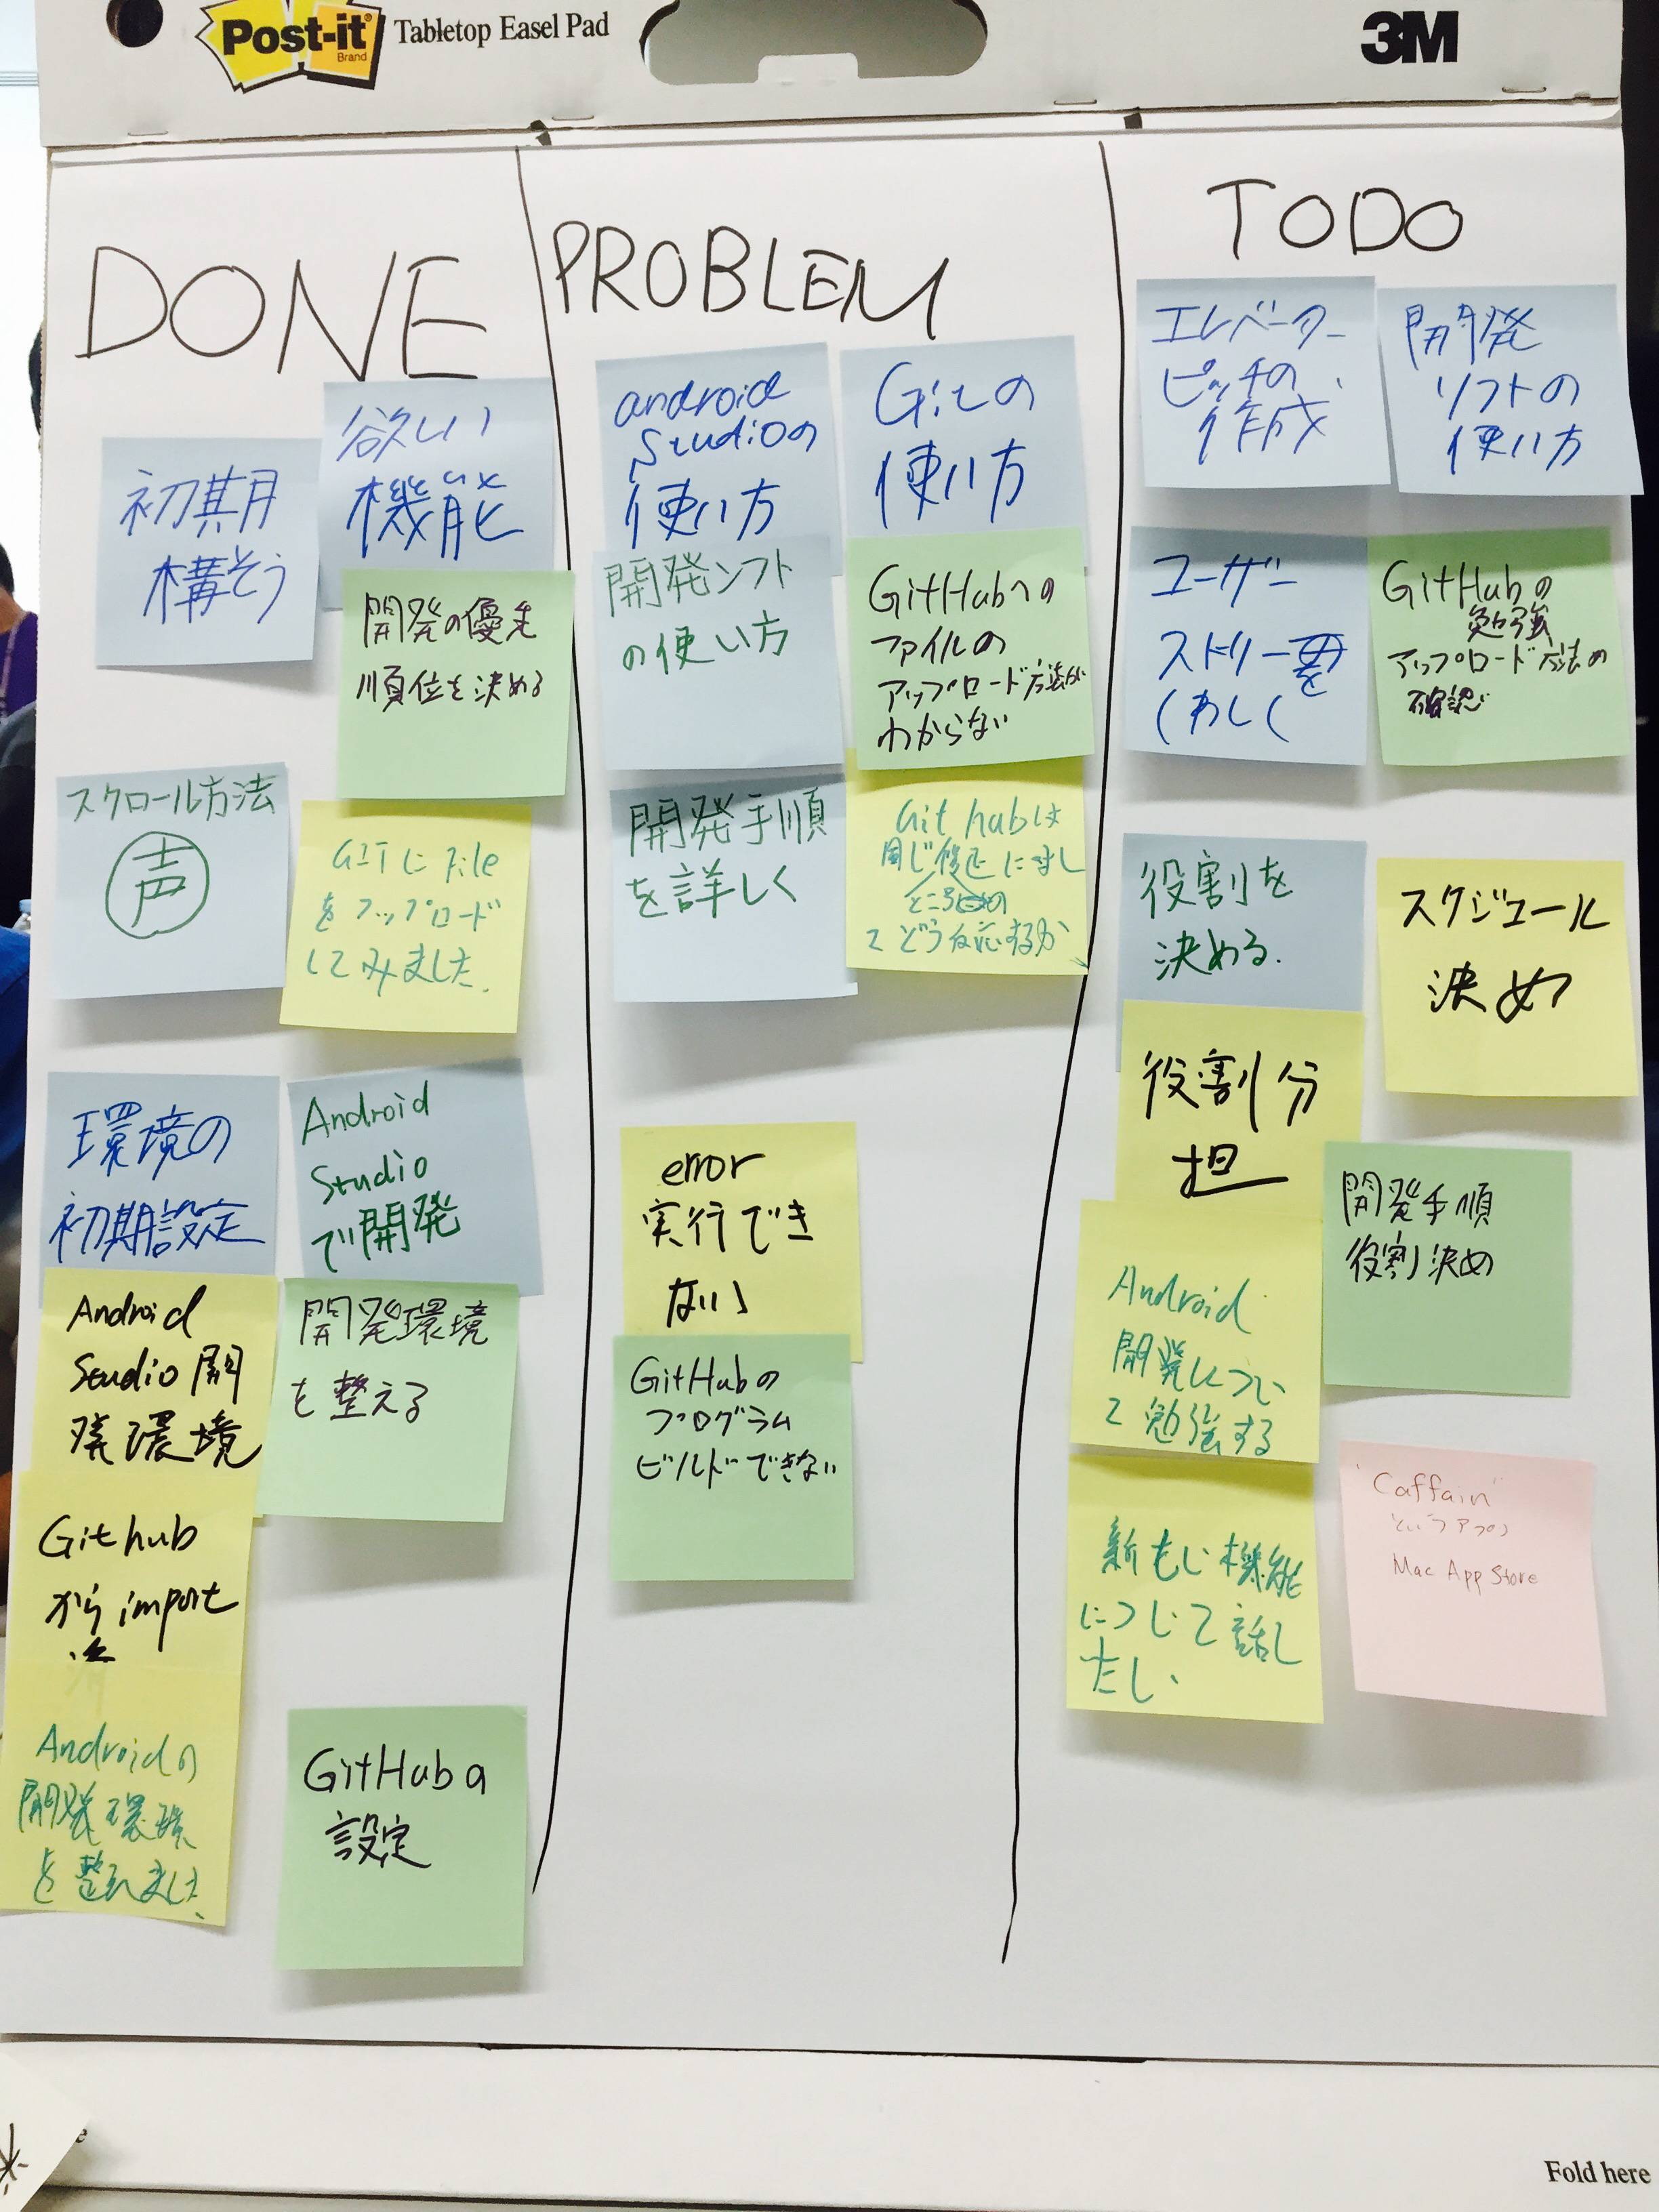 Post-it
Brand
Tabletop Easel Pad
3M
DONE
初期
構そう
欲しい
機能
開発の優先
順位を決める
スクロール方法
声
GITにfile
をアップロード
してみました.
環境の
初期設定
Android
Studio
で開発
Android
Studio開
発環境
開発環境
を整える
Github
からimport
Androidの
開発環境
を整えました.
GitHubの
設定
PROBLEM
android
Studioの
使い方
Gitの
使い方
開発ソフト
の使い方
GitHubへの
ファイルの
アップロード方法が
わからない
開発手順
を詳しく
Git hubは
同じ修正に対し
て どう反応するか
error
実行でき
ない
GitHubの
プログラム
ビルドできない
TODO
エレベーター
ピッチの
作成
開発
ソフトの
使い方
ユーザー
ストリーを
くわしく
GitHubの
勉強
アップロード方法の
確認
役割を
決める.
スケジュール
決め
役割分
担
開発手順
役割決め
Android
開発につい
て勉強する
新もい機能
について話し
たい.
"Caffain"
というアプリ
Mac App Store
Fold here